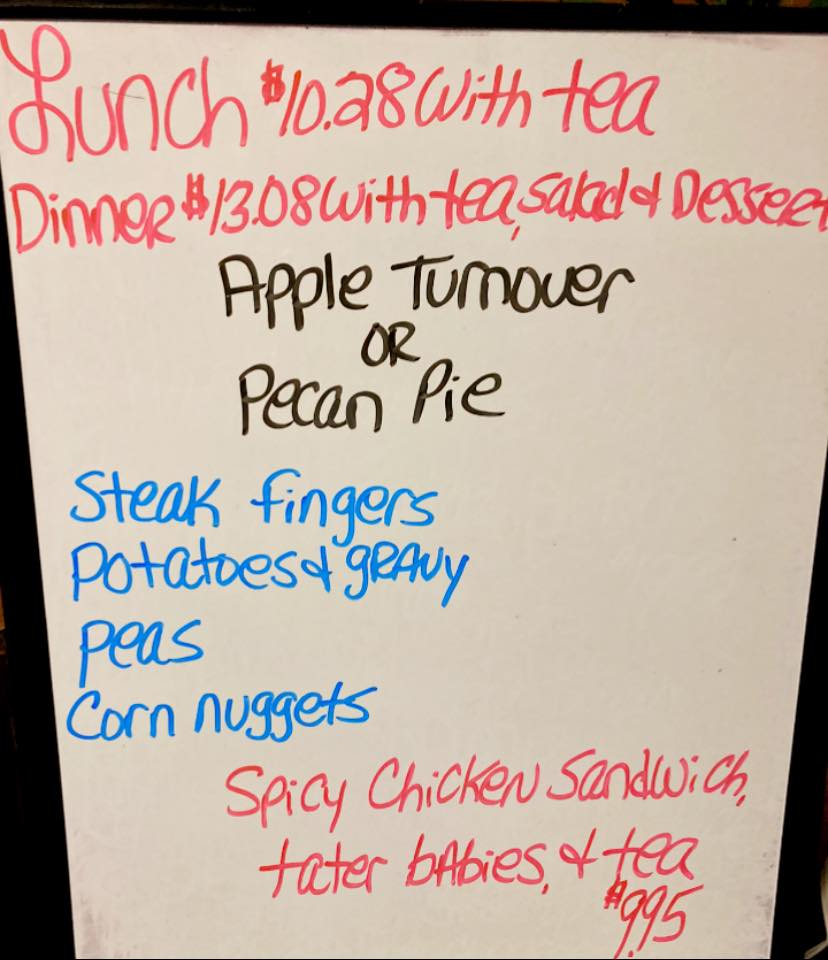 Lunch $10.28 with tea
Dinner $13.08 with tea, salad & Dessert
Apple Turnover
OR
Pecan Pie
Steak fingers
Potatoes & gravy
peas
Corn nuggets
Spicy Chicken Sandwich,
tater babies, & tea
$9.95